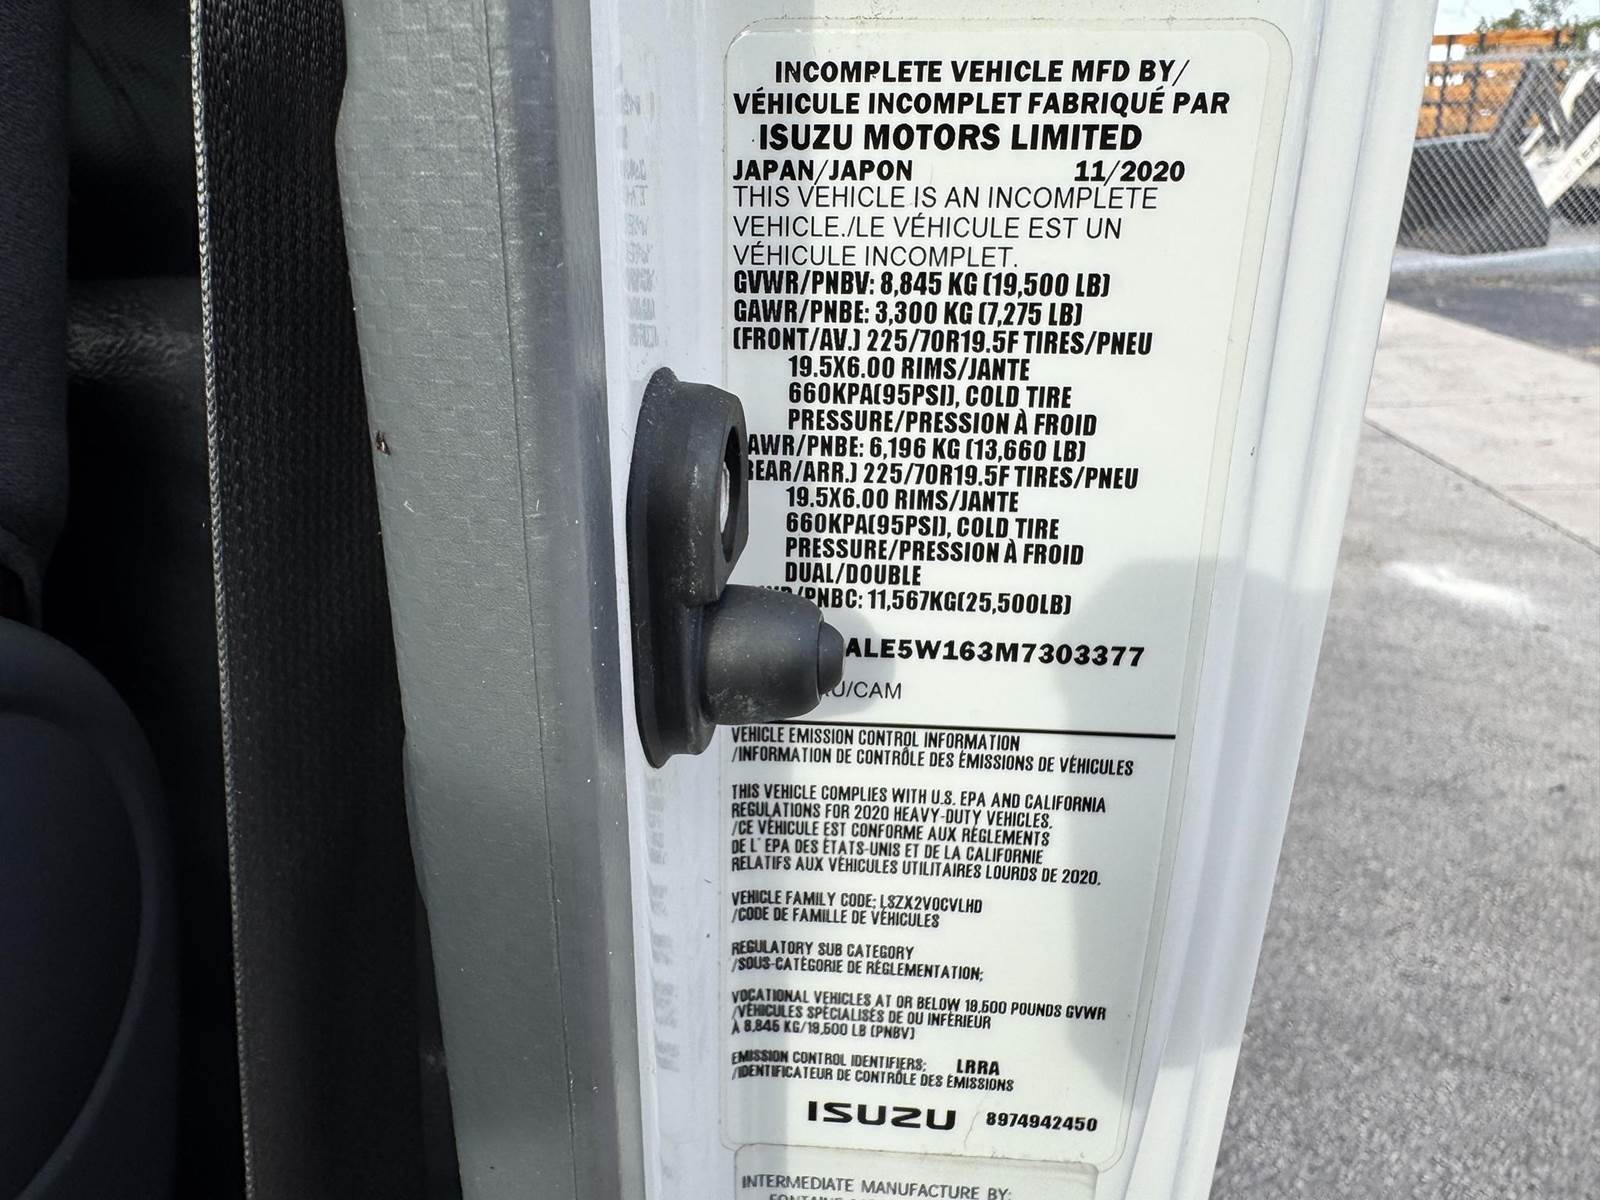 INCOMPLETE VEHICLE MFD BY/
VÉHICULE INCOMPLET FABRIQUÉ PAR
ISUZU MOTORS LIMITED
JAPAN/JAPON 11/2020
THIS VEHICLE IS AN INCOMPLETE
VEHICLE./LE VÉHICULE EST UN
VÉHICULE INCOMPLET.
GVWR/PNBV: 8,845 KG (19,500 LB)
GAWR/PNBE: 3,300 KG (7,275 LB)
(FRONT/AV.) 225/70R19.5F TIRES/PNEU
19.5X6.00 RIMS/JANTE
660KPA(95PSI), COLD TIRE
PRESSURE/PRESSION À FROID
AWR/PNBE: 6,196 KG (13,660 LB)
EAR/ARR.) 225/70R19.5F TIRES/PNEU
19.5X6.00 RIMS/JANTE
660KPA(95PSI), COLD TIRE
PRESSURE/PRESSION À FROID
DUAL/DOUBLE
/PNBC: 11,567KG(25,500LB)
ALE5W163M7303377
U/CAM
VEHICLE EMISSION CONTROL INFORMATION
/INFORMATION DE CONTRÔLE DES ÉMISSIONS DE VÉHICULES
THIS VEHICLE COMPLIES WITH U.S. EPA AND CALIFORNIA
REGULATIONS FOR 2020 HEAVY-DUTY VEHICLES.
/CE VÉHICULE EST CONFORME AUX RÈGLEMENTS
DE L' EPA DES ÉTATS-UNIS ET DE LA CALIFORNIE
RELATIFS AUX VÉHICULES UTILITAIRES LOURDS DE 2020.
VEHICLE FAMILY CODE; LSZX2VOCVLHD
/CODE DE FAMILLE DE VÉHICULES
REGULATORY SUB CATEGORY
/SOUS-CATÉGORIE DE RÉGLEMENTATION;
VOCATIONAL VEHICLES AT OR BELOW 19,500 POUNDS GVWR
/VÉHICULES SPÉCIALISÉS DE OU INFÉRIEUR
À 8,845 KG/19,500 LB (PNBV)
EMISSION CONTROL IDENTIFIERS; LRRA
/IDENTIFICATEUR DE CONTRÔLE DES ÉMISSIONS
ISUZU 8974942450
INTERMEDIATE MANUFACTURE BY: